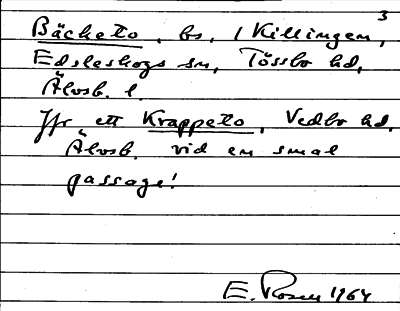 3
Bäcketo, bs, i Killingen,
Edsleskogs sn, Tössbo hd,
Älvsb. l.
Jfr ett Krappeto, Vedbo hd.
Älvsb. vid en smal
passage!
E. Rosen 1964